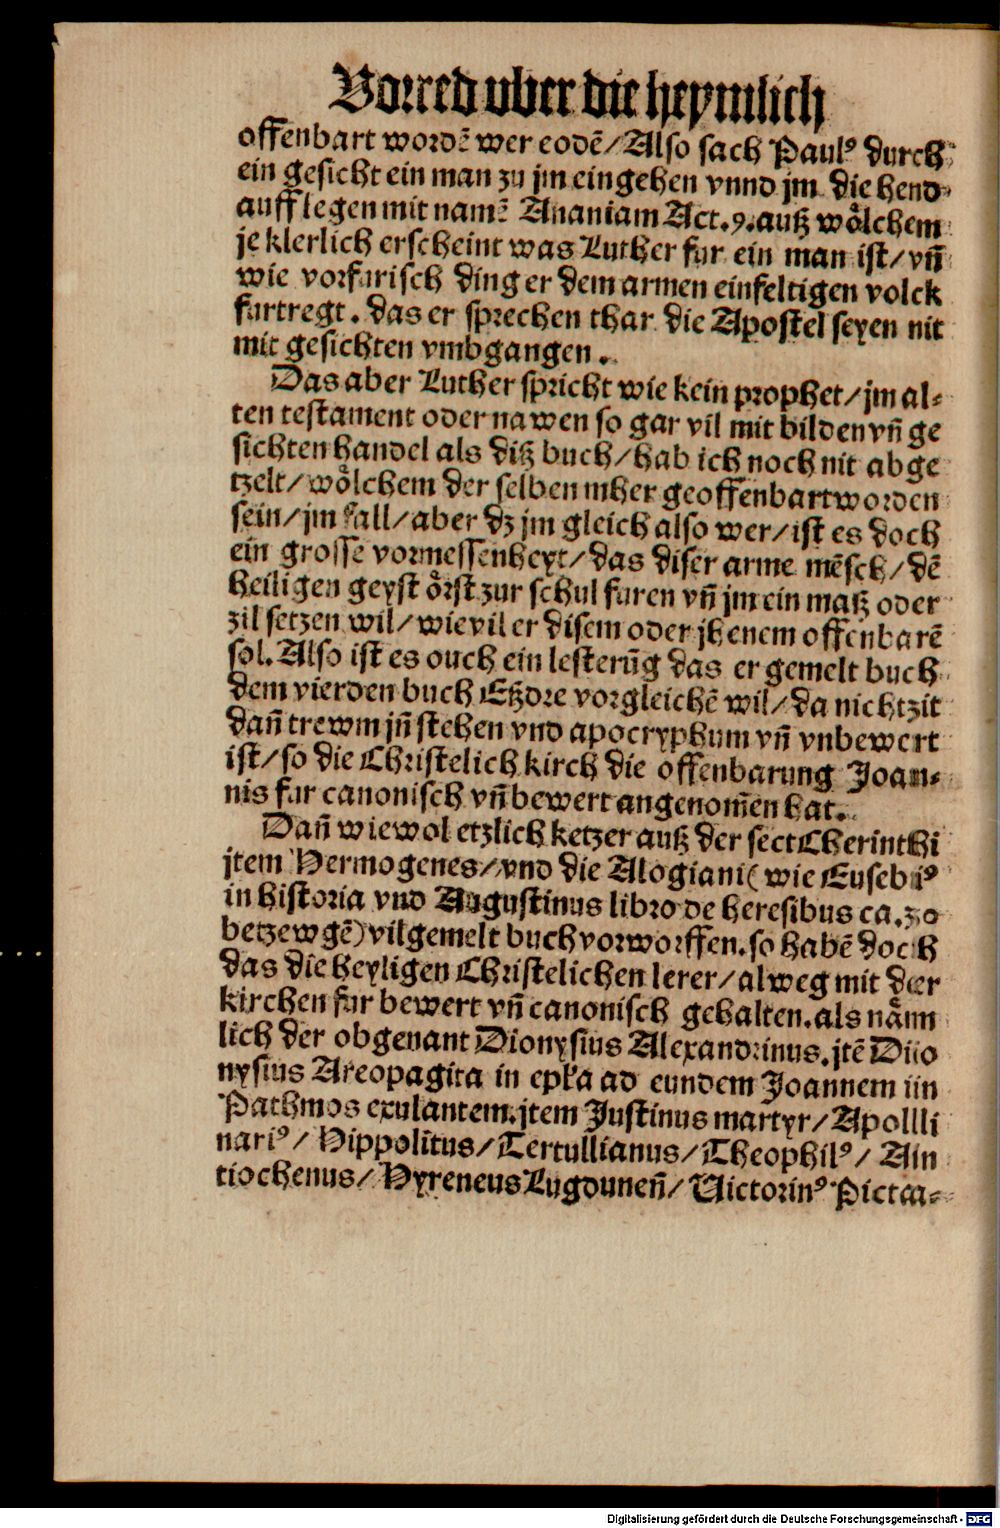 Vorred vber die heymlich
offenbart wordē wer eodē/ Also sach Paulꝰ durch
ein gesicht ein man zu jm eingehen vnnd jm die hend
auff legen mit namē Ananiam Act. 9. auß wǒlchem
je klerlich erscheint was Luther fur ein man ist/ vn̄
wie vorfurisch ding er dem armen einfeltigen volck
furtregt. das er sprechen thar die Apostel seyen nit
mit gesichten vmbgangen.
Das aber Luther spricht wie kein prophet/ jm al⸗
ten testament oder nawen so gar vil mit bilden vn̄ ge
sichten handel als diß buch/ hab ich noch nit abge
tzelt/ wǒlchem der selben mher geoffenbart worden
sein/ jm fall/ aber dz jm gleich also wer/ ist es doch
ein grosse vormessenheyt/ das diser arme mēsch/ dē
heiligen geyst ǒrst zur schul furen vn̄ jm ein maß oder
zil setzen wil/ wie vil er disem oder jhenem offenbarē
sol. Also ist es ouch ein lesterūg das er gemelt buch
dem vierden buch Eßdre vorgleichē wil/ da nichtzit
dan̄ trewm jn̄ stehen vnd apocryphum vn̄ vnbewert
ist/ so die Christelich kirch die offenbarung Joan⸗
nis fur canonisch vn̄ bewert angenom̄en hat.
Dan̄ wiewol etzlich ketzer auß der sect Cherinthi
jtem Hermogenes/ vnd die Alogiani (wie Eusebiꝰ
in historia vnd Augustinus libro de heresibus ca. 30
betzewgē) vilgemelt buch vorworffen. so habē doch
das die heyligen Christelichen lerer/ alweg mit der
kirchen fur bewert vn̄ canonisch gehalten. als nǎm
lich der obgenant Dionysius Alexandrinus. jtē Dio
nysius Areopagita in epl̄a ad eundem Joannem in
Pathmos exulantem. jtem Justinus martyr/ Apolli
nariꝰ/ Hippolitus/ Tertullianus/ Theophilꝰ/ An
tiochenus/ Hyreneus Lugdunen̄/ Victorinꝰ Picta⸗
Digitalisierung gefördert durch die Deutsche Forschungsgemeinschaft - DFG